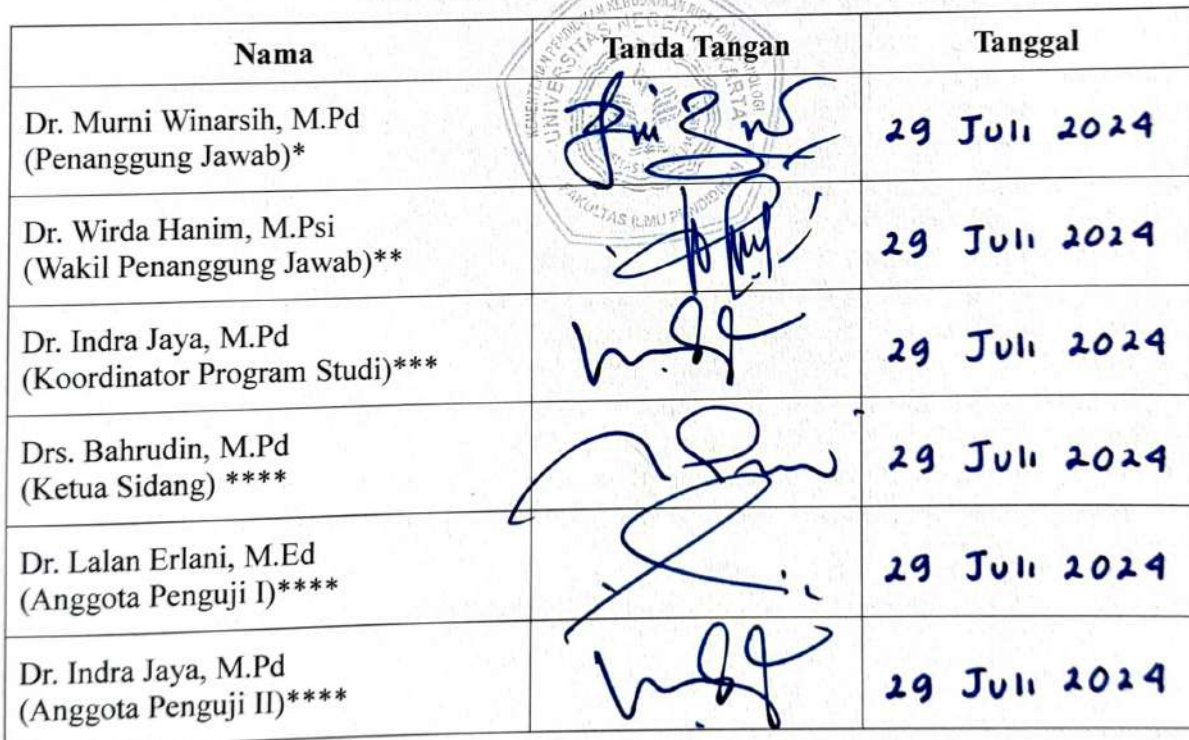 Nama Tanda Tangan Tanggal
Dr. Murni Winarsih, M.Pd
(Penanggung Jawab)* 29 Juli 2024
Dr. Wirda Hanim, M.Psi
(Wakil Penanggung Jawab)** 29 Juli 2024
Dr. Indra Jaya, M.Pd
(Koordinator Program Studi)*** 29 Juli 2024
Drs. Bahrudin, M.Pd
(Ketua Sidang) **** 29 Juli 2024
Dr. Lalan Erlani, M.Ed
(Anggota Penguji I)**** 29 Juli 2024
Dr. Indra Jaya, M.Pd
(Anggota Penguji II)**** 29 Juli 2024
UNIVERSITAS NEGERI
FAKULTAS ILMU